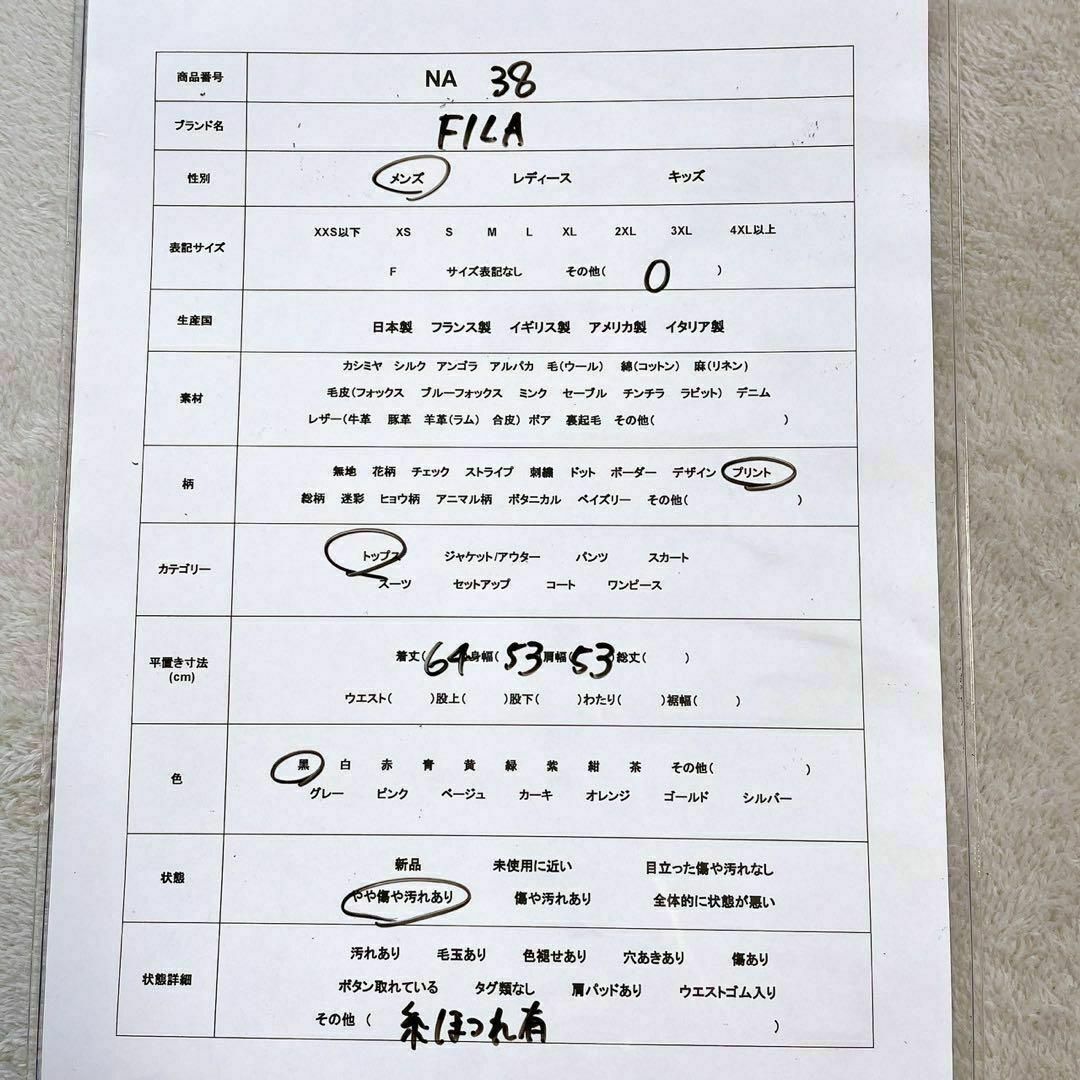 商品番号 NA 38
ブランド名 FILA
性別 メンズ レディース キッズ
表記サイズ XXS以下 XS S M L XL 2XL 3XL 4XL以上
F サイズ表記なし その他( 0 )
生産国 日本製 フランス製 イギリス製 アメリカ製 イタリア製
素材 カシミヤ シルク アンゴラ アルパカ 毛(ウール) 綿(コットン) 麻(リネン)
毛皮(フォックス ブルーフォックス ミンク セーブル チンチラ ラビット) デニム
レザー(牛革 豚革 羊革(ラム) 合皮) ボア 裏起毛 その他( )
柄 無地 花柄 チェック ストライプ 刺繍 ドット ボーダー デザイン プリント
総柄 迷彩 ヒョウ柄 アニマル柄 ボタニカル ペイズリー その他( )
カテゴリー トップス ジャケット/アウター パンツ スカート
スーツ セットアップ コート ワンピース
平置き寸法
(cm)
着丈( 64 身幅( 53 肩幅( 53 総丈( )
ウエスト( )股上( )股下( )わたり( )裾幅( )
色 黒 白 赤 青 黄 緑 紫 紺 茶 その他( )
グレー ピンク ベージュ カーキ オレンジ ゴールド シルバー
状態 新品 未使用に近い 目立った傷や汚れなし
やや傷や汚れあり 傷や汚れあり 全体的に状態が悪い
状態詳細 汚れあり 毛玉あり 色褪せあり 穴あきあり 傷あり
ボタン取れている タグ類なし 肩パッドあり ウエストゴム入り
その他 ( 糸ほつれ有 )